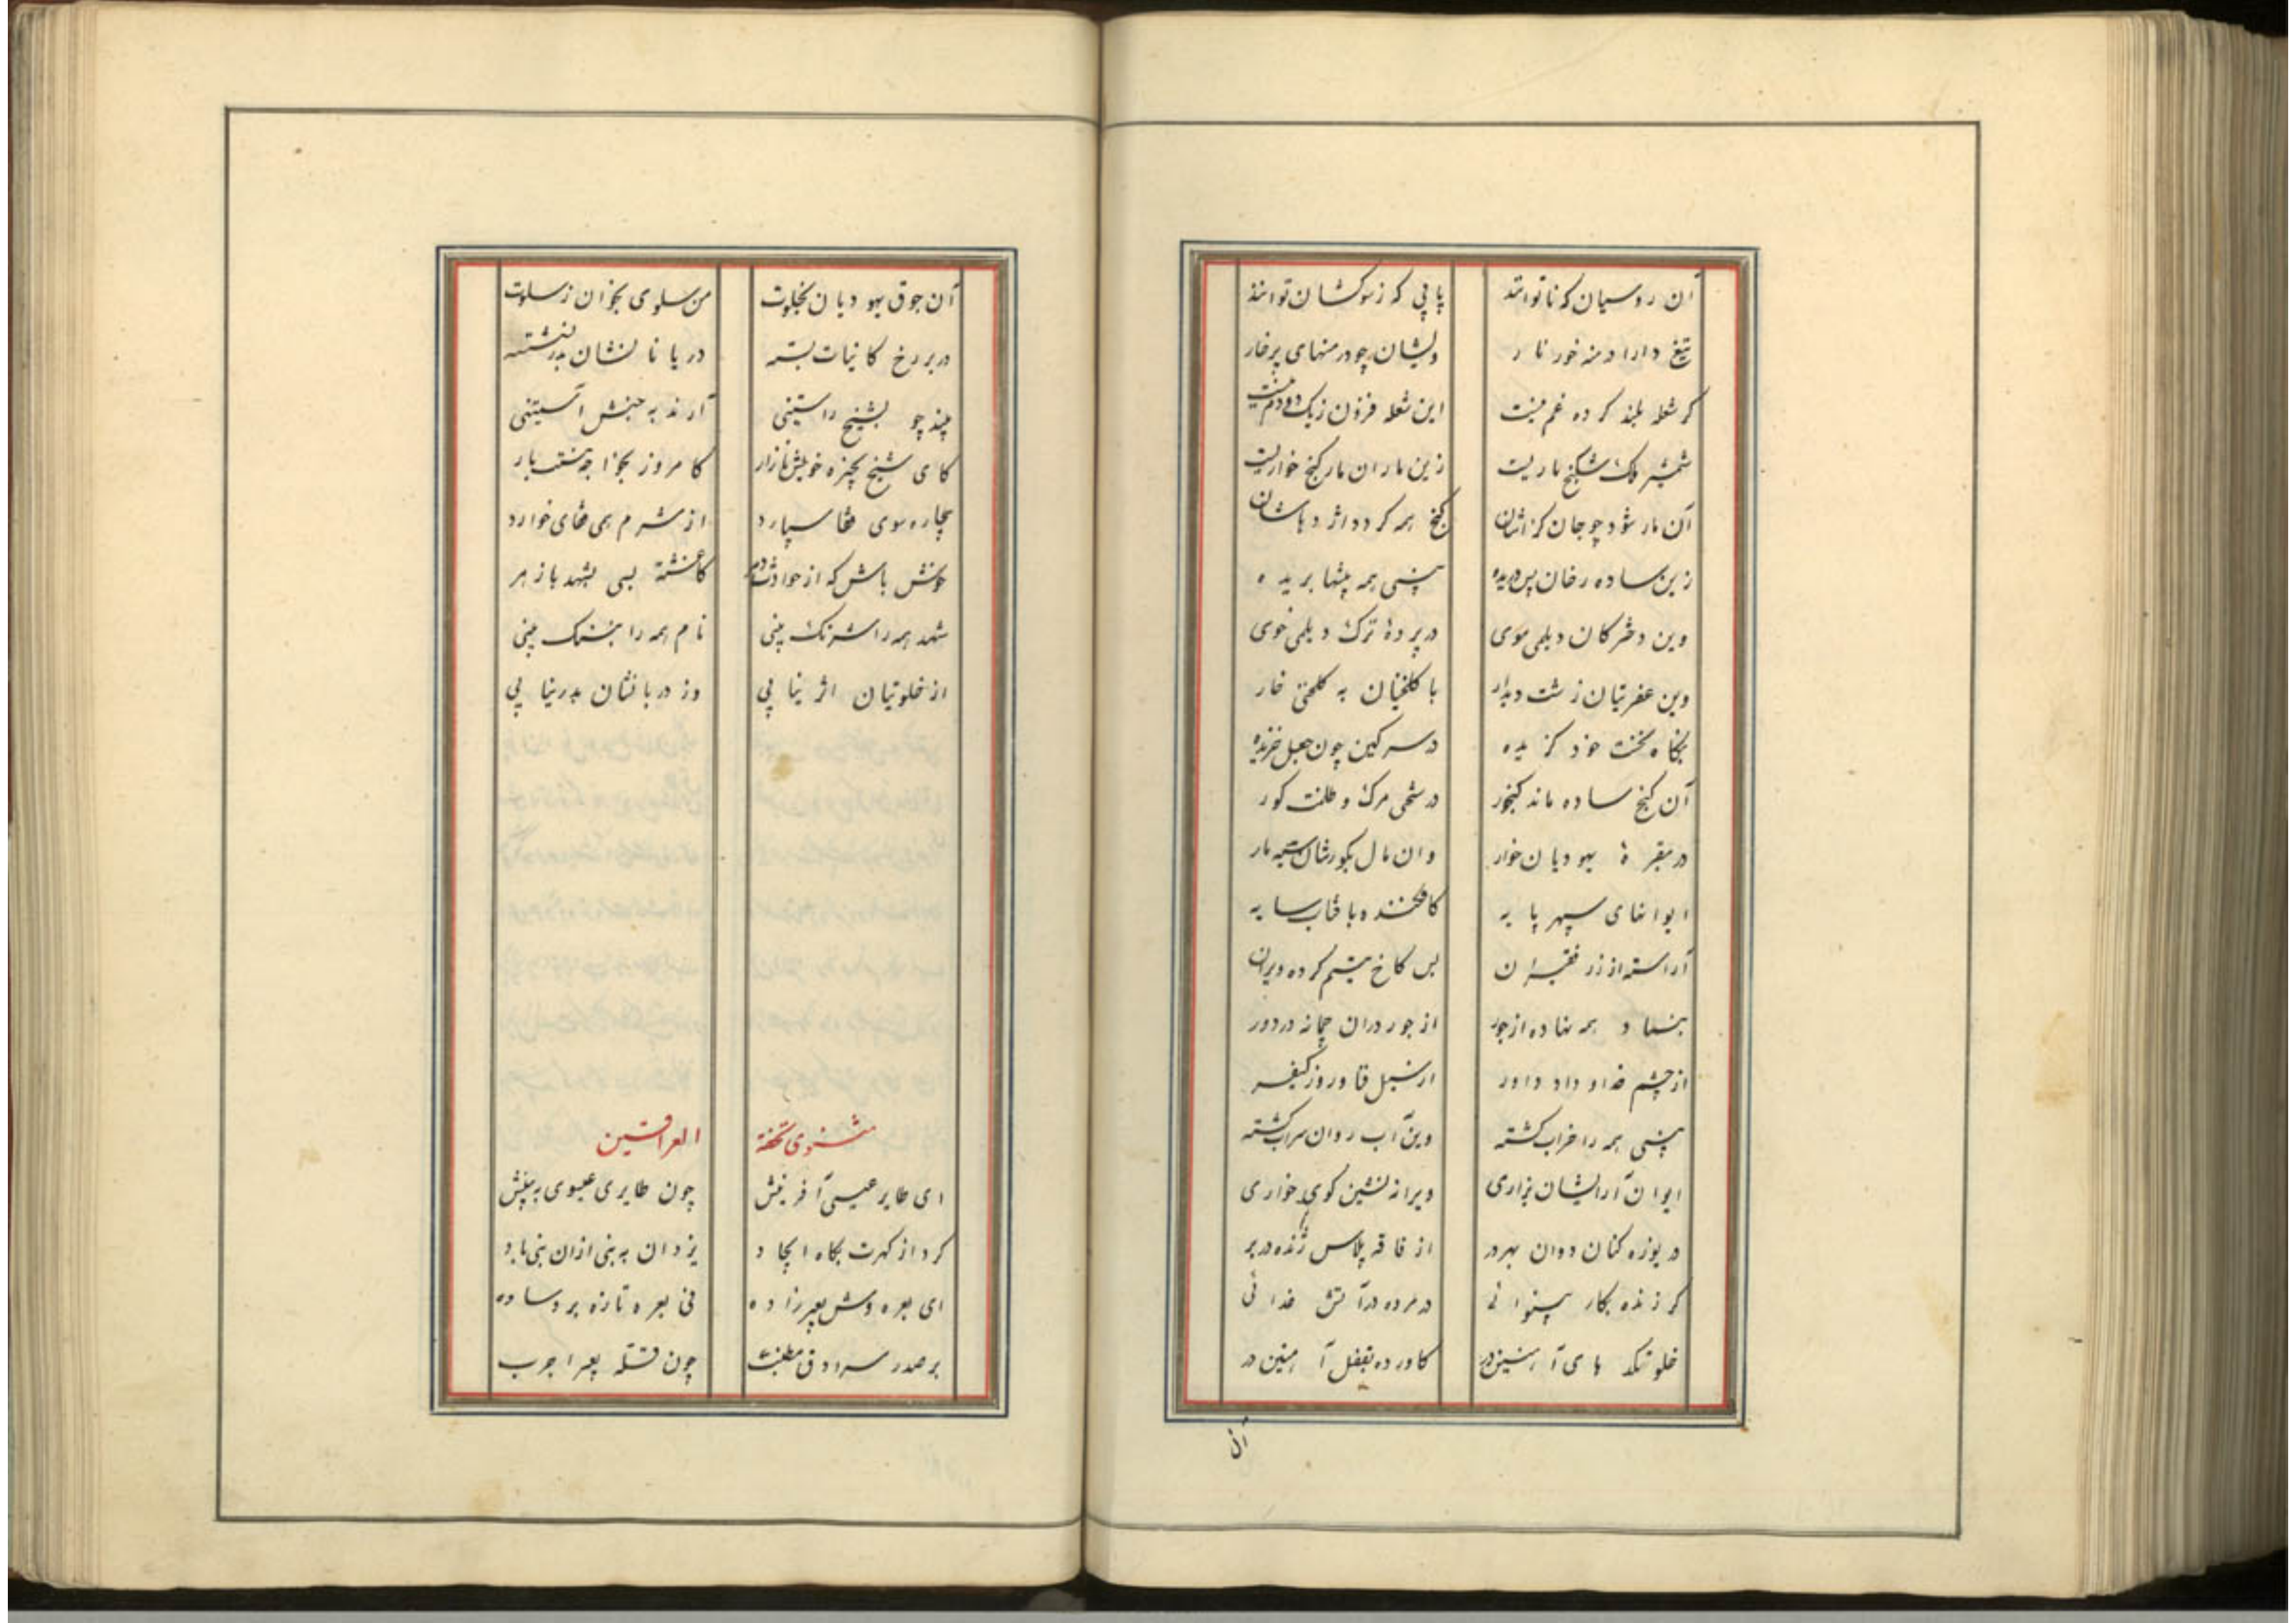 آن روسیان که ناتوانند پاپی که زموکشان توانند
تیغ دارا دمنه خور نار ولیشان چو درمنهای پرخار
کر شعله بلند کرده غم نیست این شعله فزون زیک دو دم نیست
شمشیر ملک شکنج ماریت زین ماران مار کنج خواریت
آن مار شود چو جان کزاشان کنج همه کردد اژدهاشان
زین ساده رخان پس دریده بینی همه بینیها بریده
وین دخترکان دیلمی موی در پردهٔ ترک دیلمی خوی
وین عفریتان زشت دیدار با کلخنیان به کلخنی خار
بنکاه بخت خود کزیده در سرکین چون جعل خزیده
آن کنج ساده ماند کنجور در سختی مرک و ظلمت کور
در مقبرهٔ یهودیان خوار وان مال بکورشان سیه مار
ایوانهای سپهر پایه کافکنده بافتاب سایه
آراسته از زر فقیران بس کاخ یتیم کرده ویران
بنیاد همه نهاده از جور از جور در آن چمانه در دور
از چشم خداو داد داور از سیل فنا و روز کیفر
بینی همه را خراب کشته وین آب روان سراب کشته
ایوان آرایشان بزاری ویرانه نشین کوی خواری
دریوزه کنان دوان بهر در از فاقه پلاس ژنده در بر
کر زنده بکار بینوائی در مرده در آتش خدائی
خلوتکده های آهنین در کاورده بقفل آهنین در
آن
آن جوق یهودیان بخلوت من سلوی بخوان ز سلوت
در بر رخ کاینات بسته دریانانشان بدر نشسته
بیند چو بشیخ راستینی آرند به جنبش آستینی
کای شیخ بچیزه خویش مازار کامروز بخواجه نیست بار
بیچاره سوی قفا سپارد از شرم همی قفای خوارد
خوش باش که از حوادث دهر کاغشته بسی بشهد با زهر
شهد همه را شرنک بینی نام همه را به ننک بینی
از خلوتیان اثر نیابی وز دربانشان بدر نیابی
مثنوی تحفة العراقین
ای طایر عیسی آفرینش چون طایری عیسوی به بینش
کرد از کهرت بکاه ایجاد یزدان به نبی ازان نبی یاد
ای بعره وش بعیر زاده نی بعره تازه بروساده
بر صدر سرادق مطنب چون فتله بعرا جرب